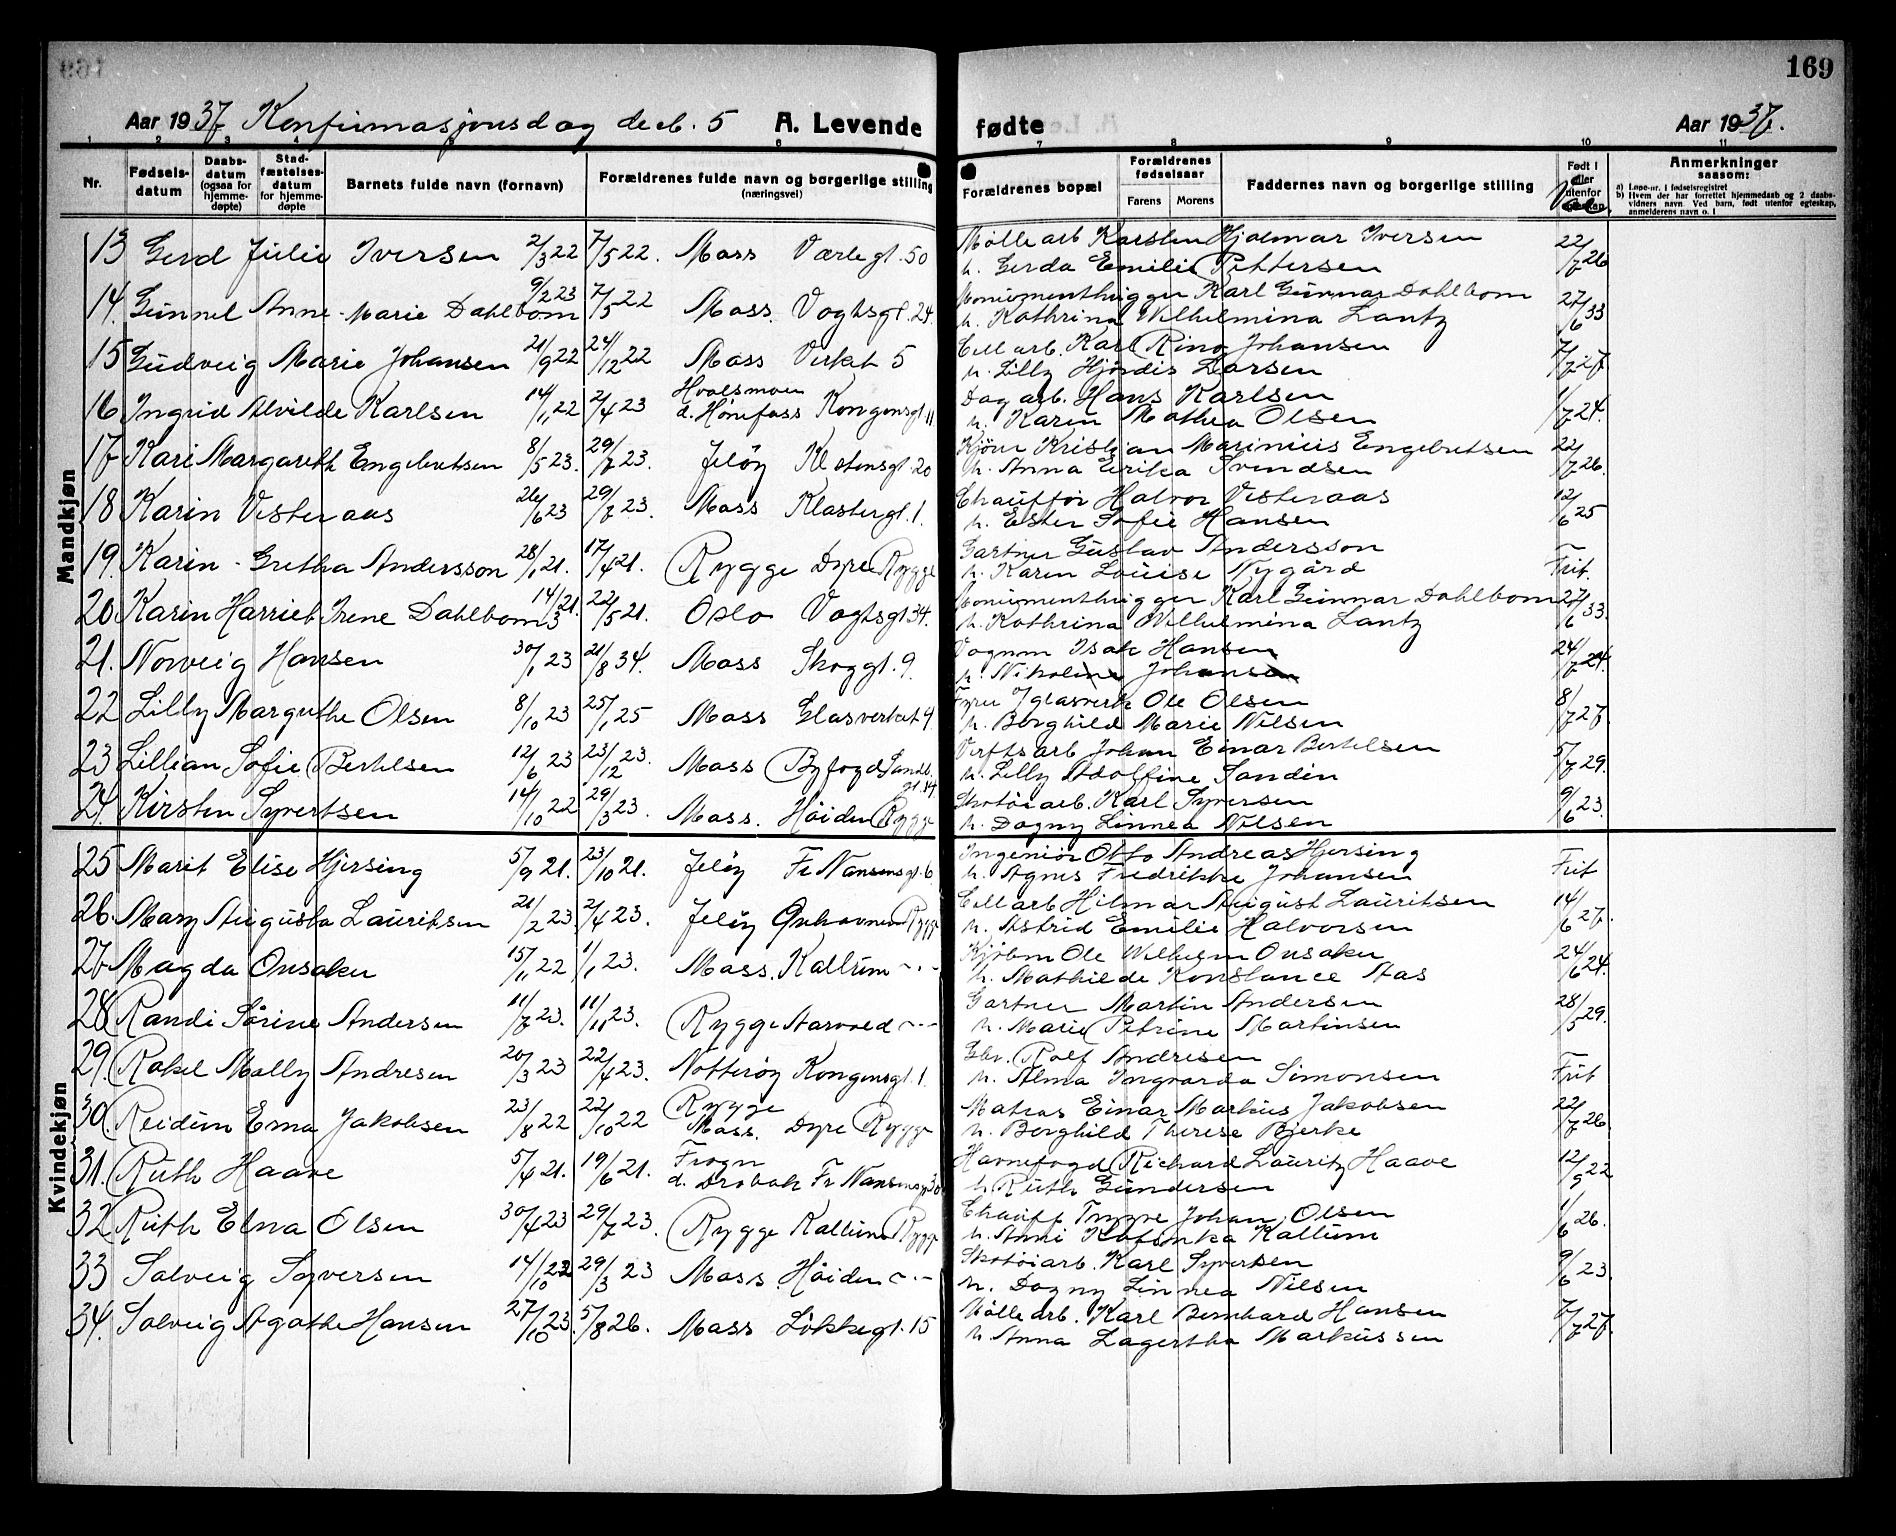 169
Aar 1937 Konfirmasjonsdag decb. 5 A. Levende fødte Aar 1937.
1 2 3 4 5 6 7 8 10 11
Nr.
Fødsels-datum
Daabs-datum (ogsaa for hjemme-døpte)
Stad-fæstelses-datum for hjemme-døpte
Barnets fulde navn (fornavn)
Forældrenes fulde navn og borgerlige stilling (næringsvei)
Forældrenes bopæl
Forældrenes fødselsaar
Farens Morens
Faddernes navn og borgerlige stilling
Født i eller utenfor
Anmerkninger saasom:
a) Løpe-nr. i fødselsregistret
b) Hvem der har forrettet hjemmedaab og 2 daabs-vidners navn. Ved barn, født utenfor egteskap, anmelderens navn o. l
Mandkjøn
13 Gerd Julie Iversen 2/3 22 7/5 22. Moss Varlegt. 50 Møllearb Karsten Hjalmar Iversen 22/7 26
h. Gerda Emilie Pettersen
14. Gunnel Anne-Marie Dahlbom 9/2 23 7/5 22 Moss. Vogtsgt. 24. Monumenthugger Karl Gunnar Dahlbom 27/6 33
h. Kathrina Wilhelmina Lantz
15 Gudveig Marie Johansen 21/9 22 24/12 22 Moss Verket 5 Cellarb. Karl Ring Johansen 7/7 27.
h. Lilly Hjørdis Larsen
16 Ingrid Alvilde Karlsen 14/1 22 2/4 23 Hvalsmoen d. Hønefoss Kongensgt. 11 Dagarb. Hans Karlsen 1/7 24.
h. Karen Mathea Olsen
17 Kari Margareth Engebretsen 8/5 23. 29/7 23. Jeløy Klostersgt. 20 Kjører Kristian Marinius Engebretsen 22/7 26.
h. Anna Erika Svendsen
18 Karin Vesteraas 26/6 23 29/7 23. Moss Klostergt. 1. Chauffør Halvor Vesteraas 12/6 25
h. Ester Sofie Hansen
19. Karin-Gretha Andersson 28/1 21. 17/4 21. Rygge Dyre Rygge Gartner Gustav Andersson Frit.
h. Karen Louise Nygård
20 Karin Harriet Irene Dahlbom 14/3 21. 22/5 21. Oslo Vogtsgt 34. Monumenthugger Karl Gunnar Dahlbom 27/6 33
h. Kathrina Wilhelmina Lantz
21. Norveig Hansen 30/1 23 21/8 34. Moss Skoggt. 9. Vognm Isak Hansen 24/7 24.
h. Nikoline Johansen
22 Lilly Margrethe Olsen 8/10 23 25/1 25 Moss Glasverket 4 Fyrer v/glasverk Ole Olsen 8/7 27.
h. Borghild Marie Nilsen
23 Lillian Sofie Bertelsen 12/6 23 23/12 23. Moss Byfogd Sandb. gt. 14 Verftsarb Johan Einar Bertelsen 5/7 29.
h. Lilly Adolfine Sandin
24. Kirsten Syvertsen 14/10 22 29/3 23. Moss. Høiden Rygge Skotøiarb. Karl Syversen 9/6 23.
h. Dagny Linnea Nilsen
Kvindekjøn
25 Marit Elise Hjersing 5/9 21. 23/10 21. Jeløy Fr Nansensgt. 6 Ingeniør Otto Andreas Hjersing Frit
h. Agnes Fredrikke Johansen
26. Mary Augusta Lauritsen 21/2 23. 2/4 23. Jeløy Rygge Cellarb Hilmar August Lauritsen 14/6 27.
h. Astrid Emilie Halvorsen
27 Magda Onsaker 15/1 22 1/1 23. Moss. Kallum -"- Kjøbm Ole Wilhelm Onsaker 24/6 24.
h. Mathilde Konstance Aas
28 Randi Sørine Andersen 11/7 23. 11/11 23. Rygge Aarvold -"- Gartner Martin Andersen 28/5 29.
h. Marie Petrine Martinsen
29. Rakel Molly Andresen 20/3 23 22/4 23. Nøtterøy Kongensgt. 1. Gbr. Rolf Andresen Frit
h. Alma Ingvarda Simonsen
30 Reidun Erna Jakobsen 23/8 22 22/10 22 Rygge Moss. Dyre Rygge Matros Einar Markus Jakobsen 22/7 26.
h. Borghild Therese Bjerke
31. Ruth Haave 5/4 21. 19/6 21. Frogn d. Drøbak Fr Nansensgt 30 Havnefogd Richard Lauritz Haave 12/9 22
h Ruth Gundersen
32 Ruth Elna Olsen 30/4 23 29/7 23. Rygge Kallum Rygge Chauff. Trygve Johan Olsen 1/6 26.
h. Anni Katinka Kallum
33 Solveig Syversen 14/10 22 29/3 23 Moss. Høiden -"- Skotøiarb. Karl Syversen 9/6 23.
h. Dagny Linnea Nilsen
34. Solveig Agathe Hansen 27/10 23. 5/8 26. Moss Løkkegt. 15 Møllearb. Karl Bernhard Hansen 7/7 27.
h Anna Lagertha Markussen